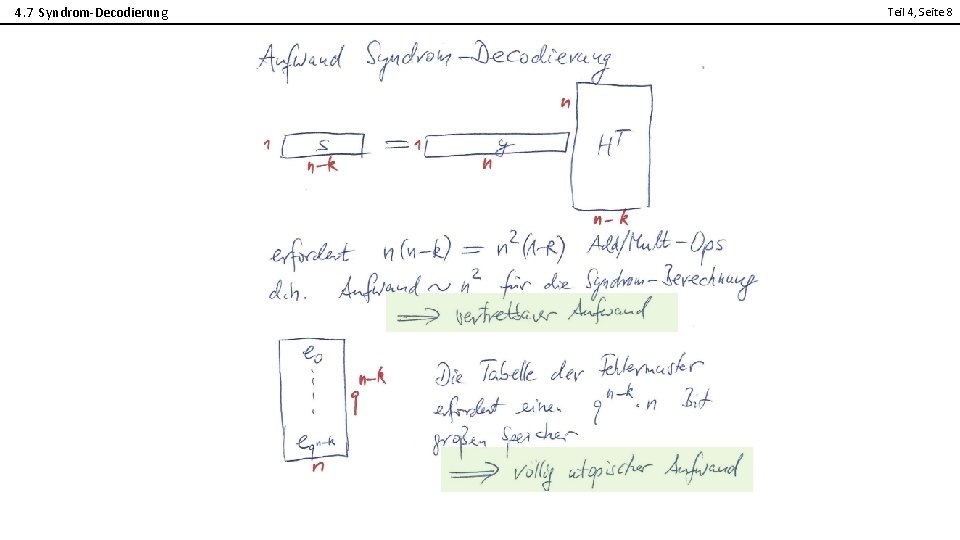 4.7 Syndrom-Decodierung
Teil 4, Seite 8
Aufwand Syndrom-Decodierung
1 s = 1 y n Hᵀ
n-k n
n-k
erfordert n(n-k) = n²(1-R) Add/Mult-Ops
d.h. Aufwand ~ n² für die Syndrom-Berechnung
⟹ vertretbarer Aufwand
e₀
n-k
q
e_qⁿ⁻ᵏ
n
Die Tabelle der Fehlermuster
erfordert einen qⁿ⁻ᵏ · n Bit
großen Speicher
⟹ völlig utopischer Aufwand